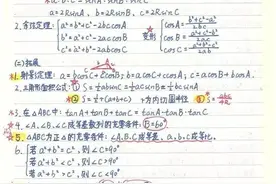 a=2RsinA, b=2RsinB, c=2RsinC
2. 余弦定理: a²=b²+c²-2bccosA 变形 cosA=
b²=a²+c²-2accosB cosB=
c²=a²+b²-2abcosC cosC=
(二)拓展
*1. 射影定理: a=bcosC+ccosB; b=acosC+ccosA; c=acosB+bcosA.
*2. 三角形面积公式: ① S=½absinC=½acsinB=½bcsinA
② S=½r(a+b+c) r为内切圆半径 ③ S=abc/4R
*3. 在△ABC中: tanA+tanB+tanC=tanA·tanB·tanC
*4. ∠A、∠B、∠C成等差数列的充要条件: B=60°
*5. △ABC为正△的充要条件: ∠A、B、C成等差, a、b、c成等比.
6. 若a²+b²>c², 则∠C<90°
若a²+b²=c², 则∠C=90°